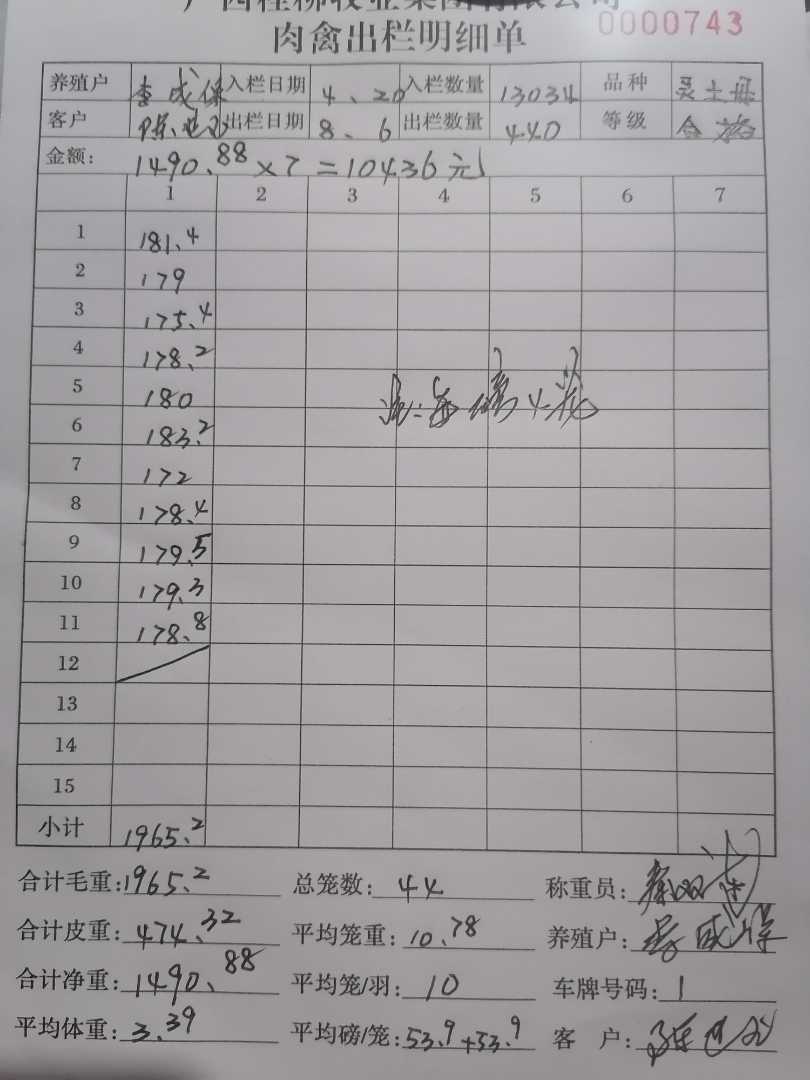 广西桂柳牧业集团有限公司
肉禽出栏明细单 0000743
养殖户 李成保 入栏日期 4、20 入栏数量 13034 品种 灵土母
客户 出栏日期 8、6 出栏数量 440 等级 合格
金额: 1490.88×7=10436元
1 2 3 4 5 6 7
1 181.4
2 179
3 175.4
4 178.2
5 180
6 183.2
7 172
8 178.4
9 179.5
10 179.3
11 178.8
12
13
14
15
小计 1965.2
合计毛重: 1965.2 总笼数: 44 称重员:
合计皮重: 474.32 平均笼重: 10.78 养殖户: 李成保
合计净重: 1490.88 平均笼/羽: 10 车牌号码: 1
平均体重: 3.39 平均磅/笼: 53.9+53.9 客 户: